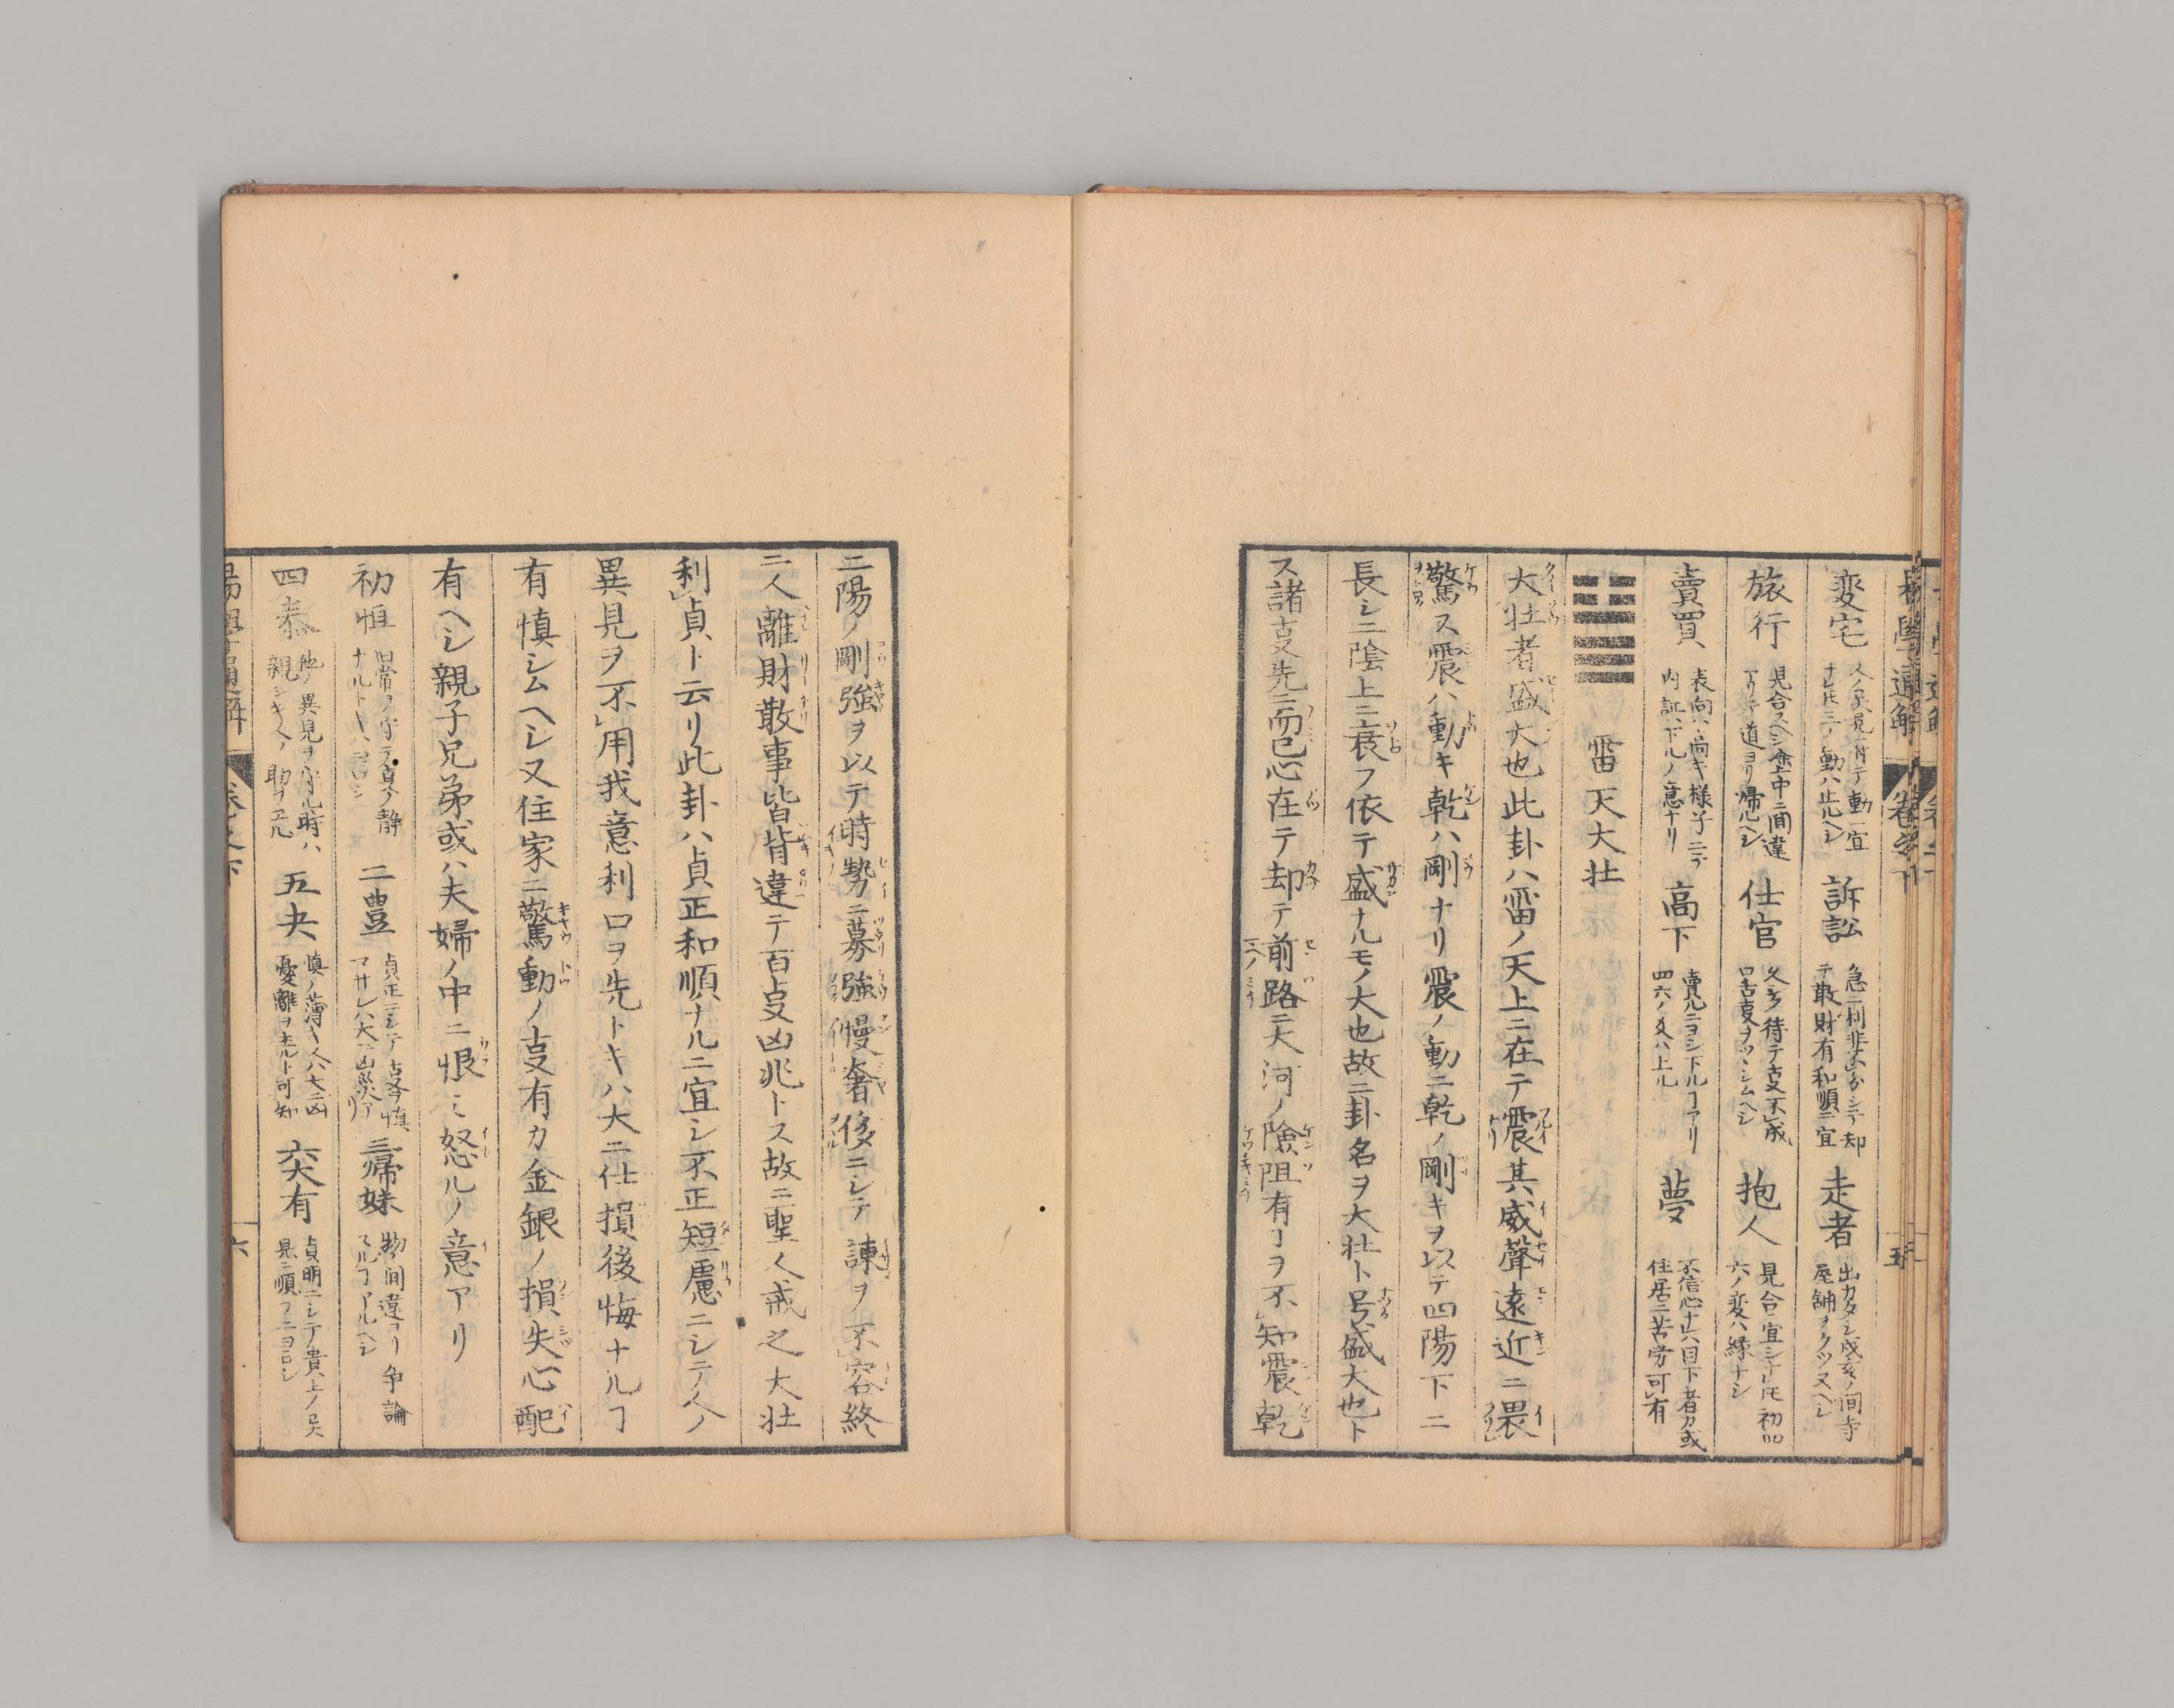 易學通解 卷之下 五
変宅 人ノ異見有テ動ニ宜ナレ𪜈三ノ動ハ止ルヘシ 訴訟 急ニ利非不分シテ却テ散財有和順ニ宜 走者 出カタシ戌亥ノ間寺屋舗ヲクツヌヘシ
旅行 見合スヘシ途中ニ間違アリテ道ヨリ帰ルヘシ 仕官 久シク待テ叓不成口舌叓ヲツヽシムヘシ 抱人 見合宜シナレ𪜈初四六ノ変ハ縁ナシ
賣買 表向ハ高キ様子ニテ内証ハ下ルノ意ナリ 高下 賣ルニヨシ下ルヿアリ四六ノ爻ハ上ル 夢 不信心ナル目下者カ或住居ニ苦労可有
雷天大壮
大壮者盛大也此卦ハ雷ノ天上ニ在テ震其威聲遠近ニ畏
驚ス震ハ動キ乾ハ剛ナリ震ノ動ニ乾ノ剛キヲ以テ四陽下ニ
長シ二陰上ニ衰フ依テ盛ナルモノ大也故ニ卦名ヲ大壮ト号盛大也ト
ス諸叓先ニ而已心在テ却テ前路ニ大河ノ險阻有ヿヲ不知震乾
二陽ノ剛強ヲ以テ時勢ニ募強慢奢侈ニシテ諫ヲ不容終
ニ人離財散事皆背違テ百叓凶兆トス故ニ聖人戒之大壮
利貞ト云リ此卦ハ貞正和順ナルニ宜シ不正短慮ニシテ人ノ
異見ヲ不用我意利口ヲ先トキハ大ニ仕損後悔ナルヿ
有慎シムヘシ又住家ニ驚動ノ叓有カ金銀ノ損失心配
有ヘシ親子兄弟或ハ夫婦ノ中ニ恨ミ怒ルノ意アリ
初恒 旧常ヲ守テ貞ク静ナルトキハヨロシ 二豊 貞正ニシテ古ヲ慎マサレハ大ニ凶災アリ 三歸妹 物ノ間違ヨリ争論スルヿアルヘシ
四泰 他ノ異見ヲ守ル時ハ親シキ人ノ助ヲ元 五夬 慎ノ薄キ人ハ大ニ凶憂離ヲ主ルト可知 六大有 貞明ニシテ貴上ノ異見ニ順フニヨロシ
易學通解 卷之下 六